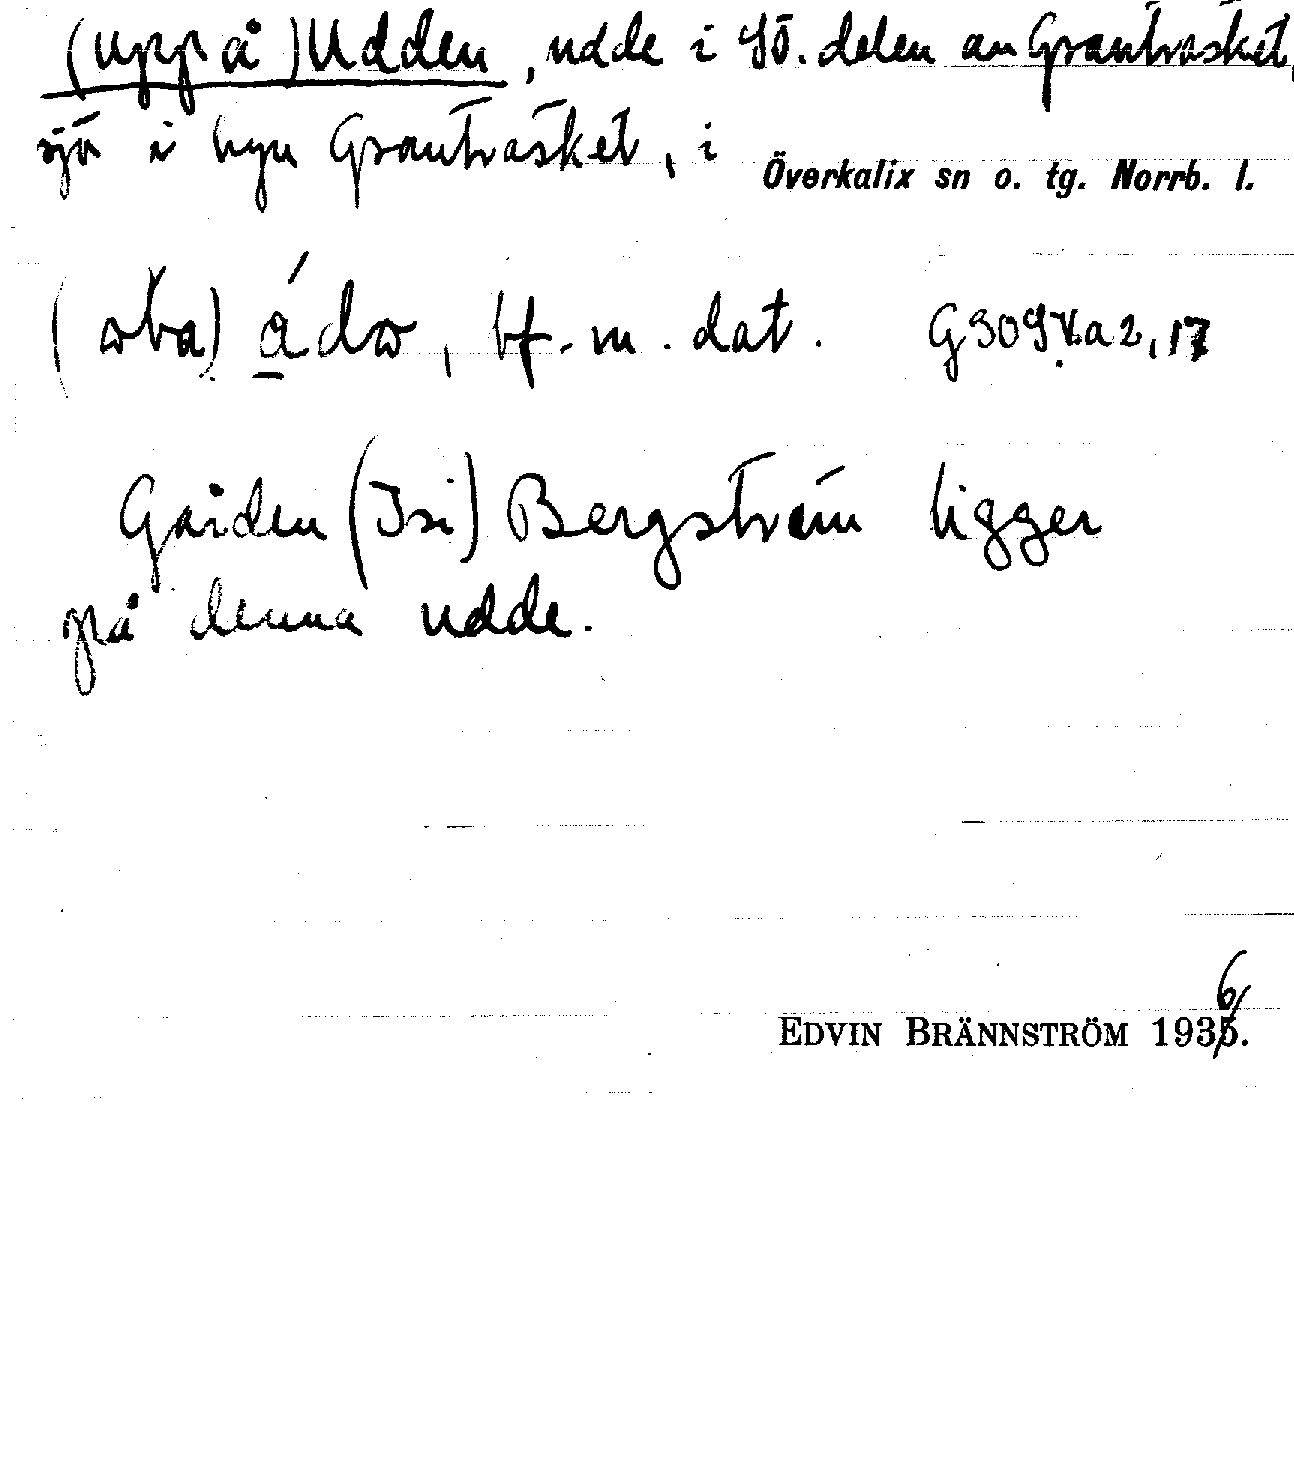 (uppå) Udden, udde i SÖ. delen av Granträsket,
sjö i byn Granträsket, i Överkalix sn o. tg. Norrb. l.
bf. m. dat.
Gården (Isi) Bergström ligger
på denna udde.
6/
EDVIN BRÄNNSTRÖM 1935.